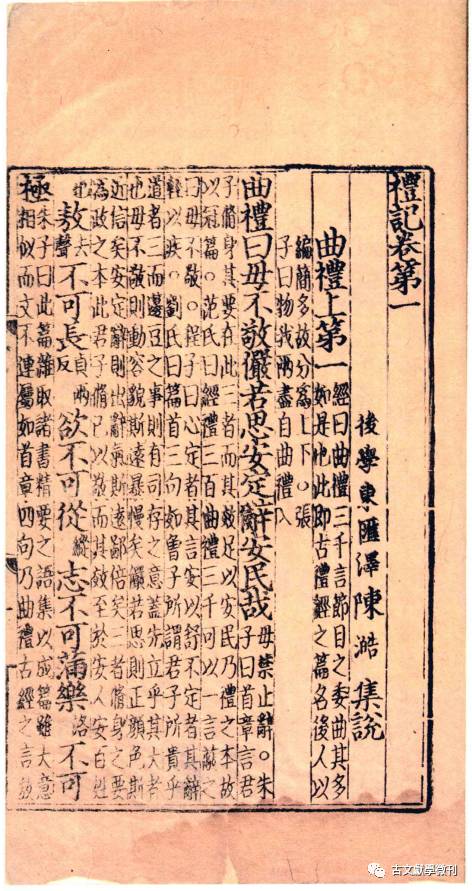 禮記卷第一
後學東匯澤陳澔集說
曲禮上第一
經曰曲禮三千言節目之委曲其多
如是也此即古禮經之篇名後人以
編簡多故分爲上下○張
子曰物我兩盡自曲禮入
曲禮曰毋不敬儼若思安定辭安民哉
毋禁止辭○朱
子曰首章言君
子脩身其要在此三者而其效足以安民乃禮之本故
以冠篇○范氏曰經禮三百曲禮三千可以一言蔽之
曰毋不敬○程子曰心定者其言安以舒不定者其辭
輕以疾○劉氏曰篇首三句如曾子所謂君子所貴乎
道者三而籩豆之事則有司存之意蓋先立乎其大者
也毋不敬則動容貌斯遠暴慢矣儼若思則正顏色斯
近信矣安定辭則出辭氣斯遠鄙倍矣三者脩身之要
為政之本此君子脩己以敬而其效至於安人安百姓
也敖去聲不可長貞兩反欲不可從縱志不可滿樂洛不可
極
朱子曰此篇雜取諸書精要之語集以成篇雖大意
相似而文不連屬如首章四句乃曲禮古經之言敖
古文獻學微刊